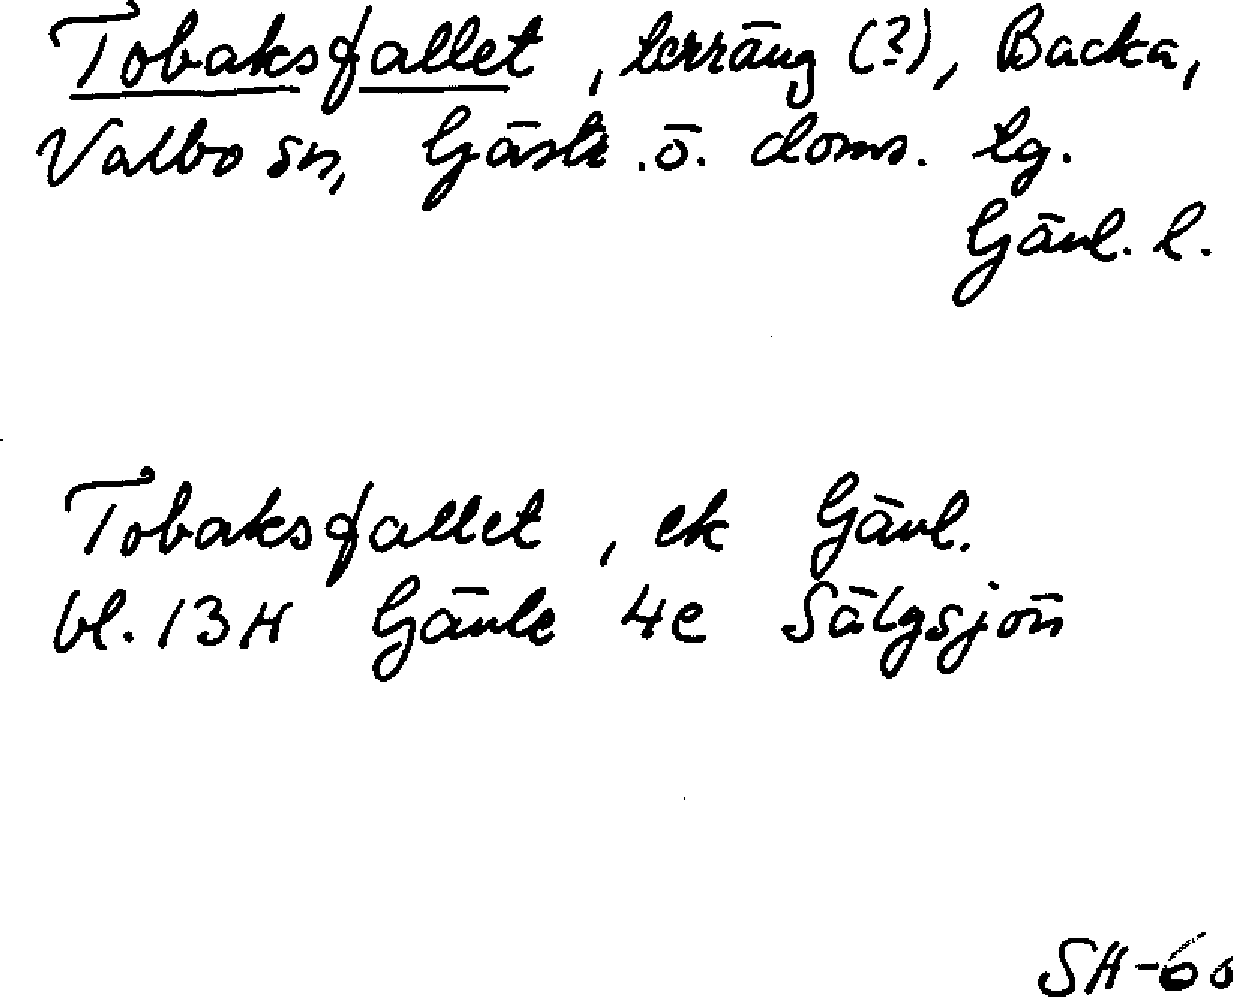 Tobaksfallet, terräng (?), Backa,
Valbo sn, Gästr. ö. doms. lg.
Gävl. l.
Tobaksfallet, ek Gävl.
bl. 13H Gävle 4e Sälgsjön
SH-60